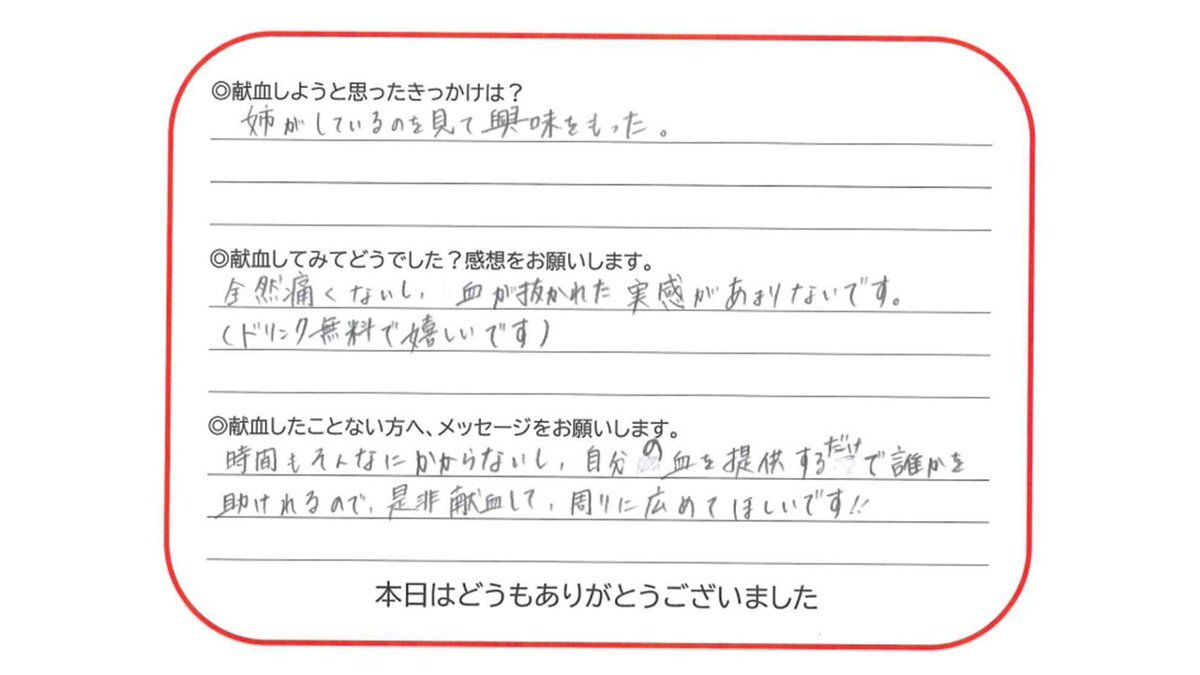 ◎献血しようと思ったきっかけは？
姉がしているのを見て興味をもった。
◎献血してみてどうでした？感想をお願いします。
全然痛くないし、血が抜かれた実感があまりないです。
(ドリンク無料で嬉しいです)
◎献血したことない方へ、メッセージをお願いします。
時間もそんなにかからないし、自分の血を提供するだけで誰かを
助けれるので、是非献血して、周りに広めてほしいです!!
本日はどうもありがとうございました